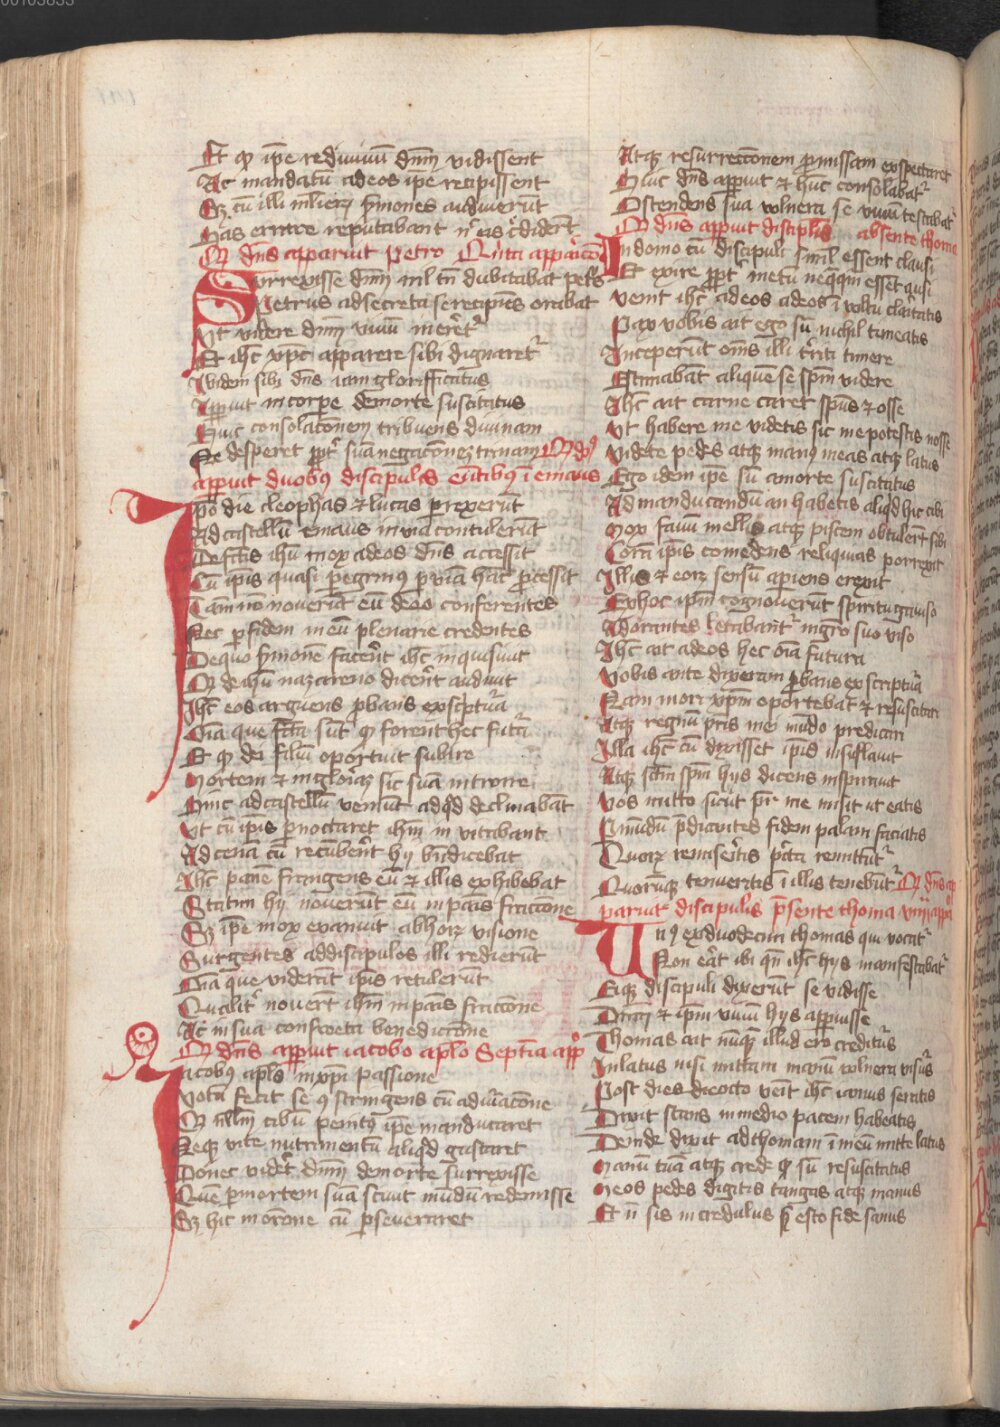 Et qꝫ ip̄e rediuiuū dn̄m vidissent
Ac mandatū adeos ip̄e recipissent
Sꝫ cū illi mulieꝝ s̄mones audiuerūt
Has errare reputabant nͨ eis c̄didert̄
Qꝫ dn̄s apparuit Petro Quīta appaͥco
Surrexisse dn̄m nil tn̄ dubitabat petꝰ
Petrus adsecreta se recipiēs orabat
Ut videre dn̄m viuū meret͛
Et ihc̄ xpc̄ apparere sibi dignaret͛
Ibidem sibi dn̄s iam glorifficatus
Apparuit in corpe demorte suscitatus
Huic consolacōnem tribuens diuinam
Ne desperet ꝓpt͛ suā negacōneꝫ trinam Qꝫ dꝯ
apparuit duobꝰ discipulis euntibꝰ ī emaus
Ipo die cleophas ⁊ lucas prexerūt
Ad castellū emaus in viā contulerūt
De fc̄is ihū mox adeos dn̄s accessit
Cū ipīs quasi pegrinꝰ ꝑ viā hāc ꝓcessit
Tam non nouerūt eū deo conferentes
Nec ꝑfidem in eū plenarie credentes
De quo s̄mone facer̄t ihc̄ inquisiuit
Qꝫ de ihū nazareno dicer̄t audiuit
Ihc̄ eos arguens ꝓbans exscriptura
Om̄a que fc̄a sūt qꝫ forent hec futͣ
Et qꝫ dei filiū oportuit subire
Mortem ⁊ in gloriaꝫ sic suā introire
Hinc ad castellū veniūt adqd̄ declinabāt
Ut cū ipīs ꝑnoctaret ihm̄ inuitabant
Ad cenā cū recūber̄t hij bn̄dicebat
Ihc̄ panē frangens eū ⁊ illis exhibebat
Statim hij nouerūt eū in panis fraccōne
Sꝫ ip̄e mox euanuit abhoꝝ visione
Surgentes addiscipulos illi redierūt
Om̄a que viderūt ipīs retulerūt
Qualit͛ nouer̄t ihm̄ in panis fraccōne
Ac in sua consweta benediccōne
Qꝫ dn̄s apparuit iacobo apl̄o Septīa app̄
Iacobꝰ apl̄s in xp̄i passione
Votū fecit se ꝯstringens cū adiuracōne
Qꝫ nllm̄ cibū penitꝰ ip̄e manducaret
Neqꝫ vite nutrimentū aliqd̄ gustaret
Donec videt͛ dn̄m demorte surrexisse
Quē ꝑ mortem suā sciuit mūdū redemisse
Sꝫ hic in orōne cū ꝑseueraret
Atqꝫ resurreccōnem ꝓmissam exspectaret
Huic dn̄s apparuit ⁊ hūc consolabat͛
Ostendens sua vulnera se viuū testabat͛
Qꝫ dn̄s apparuit discipl̄is absente thoma
In domo cū discipuli simil essent clausi
Et exire ꝓpt͛ metū neqꝫqm̄ essēt ausi
Venit ihc̄ adeos adeos ī voltu claritatis
Pax vobis ait ego sū nichil timeatis
Inceperūt om̄s illi t͛riti timere
Estimabāt aliquē se spm̄ videre
Ihc̄ ait carne caret spūs ⁊ osse
Ut habere me videtis sic me potestis nosse
Videte pedes atqꝫ manꝰ meas atqꝫ latus
Ego idem ip̄e sū amorte suscitatus
Ad manducandū an habetis aliqd̄ hic cibi
Mox fauū mellis atqꝫ piscem obtuler̄t sibi
Corā ipīs comedēs reliquias porrexit
Illis ⁊ eoꝝ sensū aꝑiens erexit
Exhoc ipm̄ cognouerūt spiritu gauiso
Adorantes letabant͛ mgr̄o suo viso
Ihc̄ ait adeos hec om̄a futura
Vobis ante dixeram ꝓbans ex scriptura
Nam mori xp̄m oportebat ⁊ resuscitari
Atqꝫ regnū pr̄is mei mūdo predicari
Illa ihc̄ cū dixisset ipīs insufflauit
Atqꝫ sc̄m spm̄ hijs dicens inspirauit
Vos mitto sicut pr̄ me misit ut eatis
P mūdū p̄dicantes fidem palam faciatis
Quoꝝ remiseritis pc̄ca remittūt͛
Quorūqꝫ tenueritis ī illis tenebūt͛ Qꝫ dn̄s ap
paruit discipulis p̄sente thoma viij appa
Unꝰ exduodecim thomas qui vocat͛
Non erat ibi qn̄ ihc̄ hijs manifestabat͛
Eiqꝫ discipuli dixerūt se vidisse
Dn̄m ⁊ ipm̄ viuū hijs apparuisse
Thomas ait nūqꝫ illud ero crediturͥs
In latus nisi mittam manū volnera visurͥs
Post dies dicocto ven̄it ihc̄ ianuis seratis
Dixit stans in medio pacem habeatis
Deinde dixit ad thomam ī meū mitte latus
Manū tuā atqꝫ crede qꝫ sū resuscitatus
Meos pedes digitis tangas atqꝫ manus
Et n̄ sis incredulus sꝫ esto fide sanus